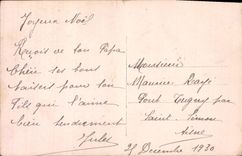 Joyeux Noël
Reçois de ton Papa
Chéri les bons
baisers pour ton
fils qui t'aime
bien tendrement
Jules
Monsieur
Maurice
Pont Tugny par
Saint-Simon
Aisne
25 Décembre 1930